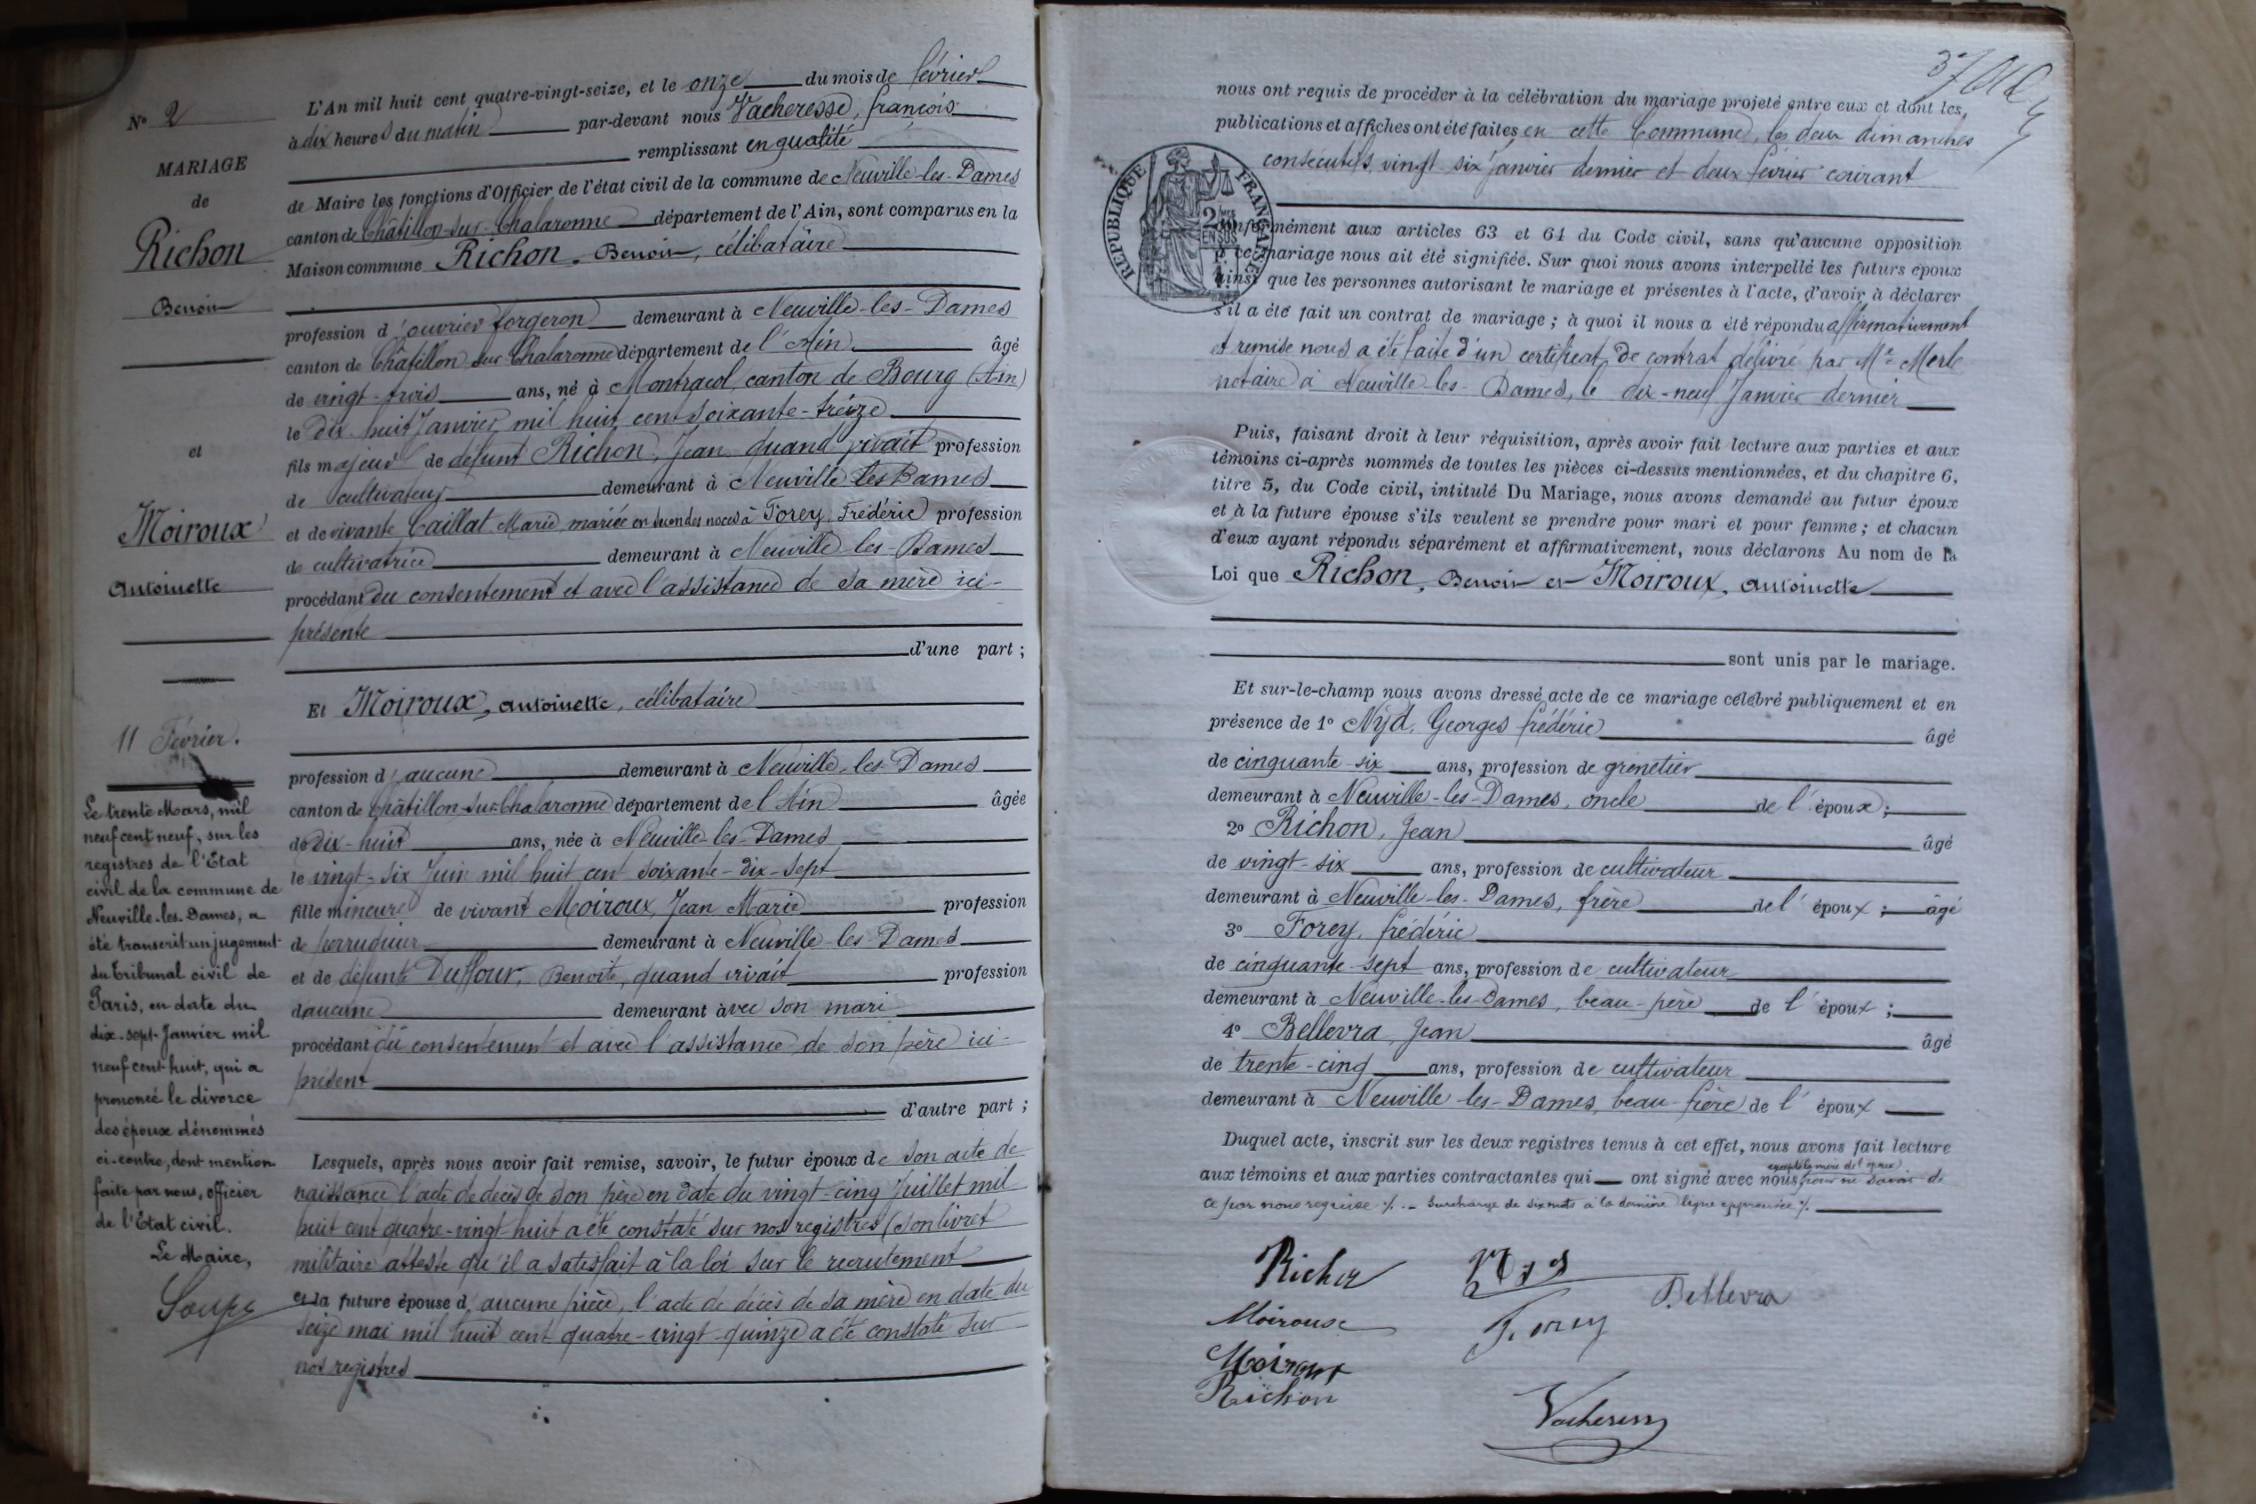 N° 2
MARIAGE
de
Richon
Benoît
et
Moiroux
Antoinette
11 Février.
Le trente Mars, mil
neuf cent neuf, sur les
registres de l'Etat
civil de la commune de
Neuville-les-Dames, a
été transcrit un jugement
du Tribunal civil de
Paris, en date du
dix-sept Janvier mil
neuf cent huit, qui a
prononcé le divorce
des époux dénommés
ci-contre, dont mention
faite par nous, officier
de l'Etat civil.
Le Maire,
L'An mil huit cent quatre-vingt-seize, et le onze du mois de février
à dix heures du matin par-devant nous Vacheresse, françois
remplissant en qualité
de Maire les fonctions d'Officier de l'état civil de la commune de Neuville-les-Dames
canton de Châtillon-sur-Chalaronne département de l'Ain, sont comparus en la
Maison commune Richon, Benoît, célibataire
profession d'ouvrier forgeron demeurant à Neuville-les-Dames
canton de Châtillon sur Chalaronne département de l'Ain âgé
de vingt-trois ans, né à Montracol canton de Bourg (Ain)
le dix huit Janvier mil huit cent soixante-treize
fils majeur de défunt Richon, Jean quand vivait profession
de cultivateur demeurant à Neuville les Dames
et de vivante Caillat Marie mariée en secondes noces à Forey, Frédéric profession
de cultivatrice demeurant à Neuville-les-Dames
procédant du consentement et avec l'assistance de sa mère ici-
présente
d'une part ;
Et Moiroux, Antoinette, célibataire
profession d'aucune demeurant à Neuville-les-Dames
canton de Châtillon-sur-Chalaronne département de l'Ain âgée
de dix-huit ans, née à Neuville-les-Dames
le vingt-six Juin mil huit cent soixante-dix-sept
fille mineure de vivant Moiroux, Jean Marie profession
de perruquier demeurant à Neuville-les-Dames
et de défunte Duffour, Benoite, quand vivait profession
d'aucune demeurant avec son mari
procédant du consentement et avec l'assistance de son père ici-
présent
d'autre part ;
Lesquels, après nous avoir fait remise, savoir, le futur époux de son acte de
naissance l'acte de décès de son père en date du vingt-cinq Juillet mil
huit cent quatre-vingt huit a été constaté sur nos registres (son livret
militaire atteste qu'il a satisfait à la loi sur le recrutement
et la future épouse d'aucune pièce, l'acte de décès de sa mère en date du
seize mai mil huit cent quatre-vingt-quinze a été constaté sur
nos registres
37
nous ont requis de procéder à la célébration du mariage projeté entre eux et dont les
publications et affiches ont été faites en cette Commune, les deux dimanches
consécutifs vingt-six Janvier dernier et deux février courant
RÉPUBLIQUE FRANÇAISE
conformément aux articles 63 et 64 du Code civil, sans qu'aucune opposition
à ce mariage nous ait été signifiée. Sur quoi nous avons interpellé les futurs époux
ainsi que les personnes autorisant le mariage et présentes à l'acte, d'avoir à déclarer
s'il a été fait un contrat de mariage ; à quoi il nous a été répondu affirmativement
et remise nous a été faite d'un certificat de contrat délivré par Me Merle
notaire à Neuville-les-Dames, le dix-neuf Janvier dernier
Puis, faisant droit à leur réquisition, après avoir fait lecture aux parties et aux
témoins ci-après nommés de toutes les pièces ci-dessus mentionnées, et du chapitre 6,
titre 5, du Code civil, intitulé Du Mariage, nous avons demandé au futur époux
et à la future épouse s'ils veulent se prendre pour mari et pour femme ; et chacun
d'eux ayant répondu séparément et affirmativement, nous déclarons Au nom de la
Loi que Richon, Benoît et Moiroux, Antoinette
sont unis par le mariage.
Et sur-le-champ nous avons dressé acte de ce mariage célébré publiquement et en
présence de 1° Nyd, Georges frédéric âgé
de cinquante-six ans, profession de grenetier
demeurant à Neuville-les-Dames, oncle de l'époux ;
2° Richon, Jean âgé
de vingt-six ans, profession de cultivateur
demeurant à Neuville-les-Dames, frère de l'époux ; âgé
3° Forey, frédéric
de cinquante-sept ans, profession de cultivateur
demeurant à Neuville-les-Dames, beau-père de l'époux ;
4° Bellevra, Jean âgé
de trente-cinq ans, profession de cultivateur
demeurant à Neuville-les-Dames, beau-frère de l'époux
Duquel acte, inscrit sur les deux registres tenus à cet effet, nous avons fait lecture
excepté la mère de l'époux
aux témoins et aux parties contractantes qui ont signé avec nous pour ne savoir de
ce par nous requise ./. Surcharge de six mots à la dernière ligne approuvée ./.
Richon
Bellevra
Moiroux
Forey
Moiroux
Richon
Vacheresse